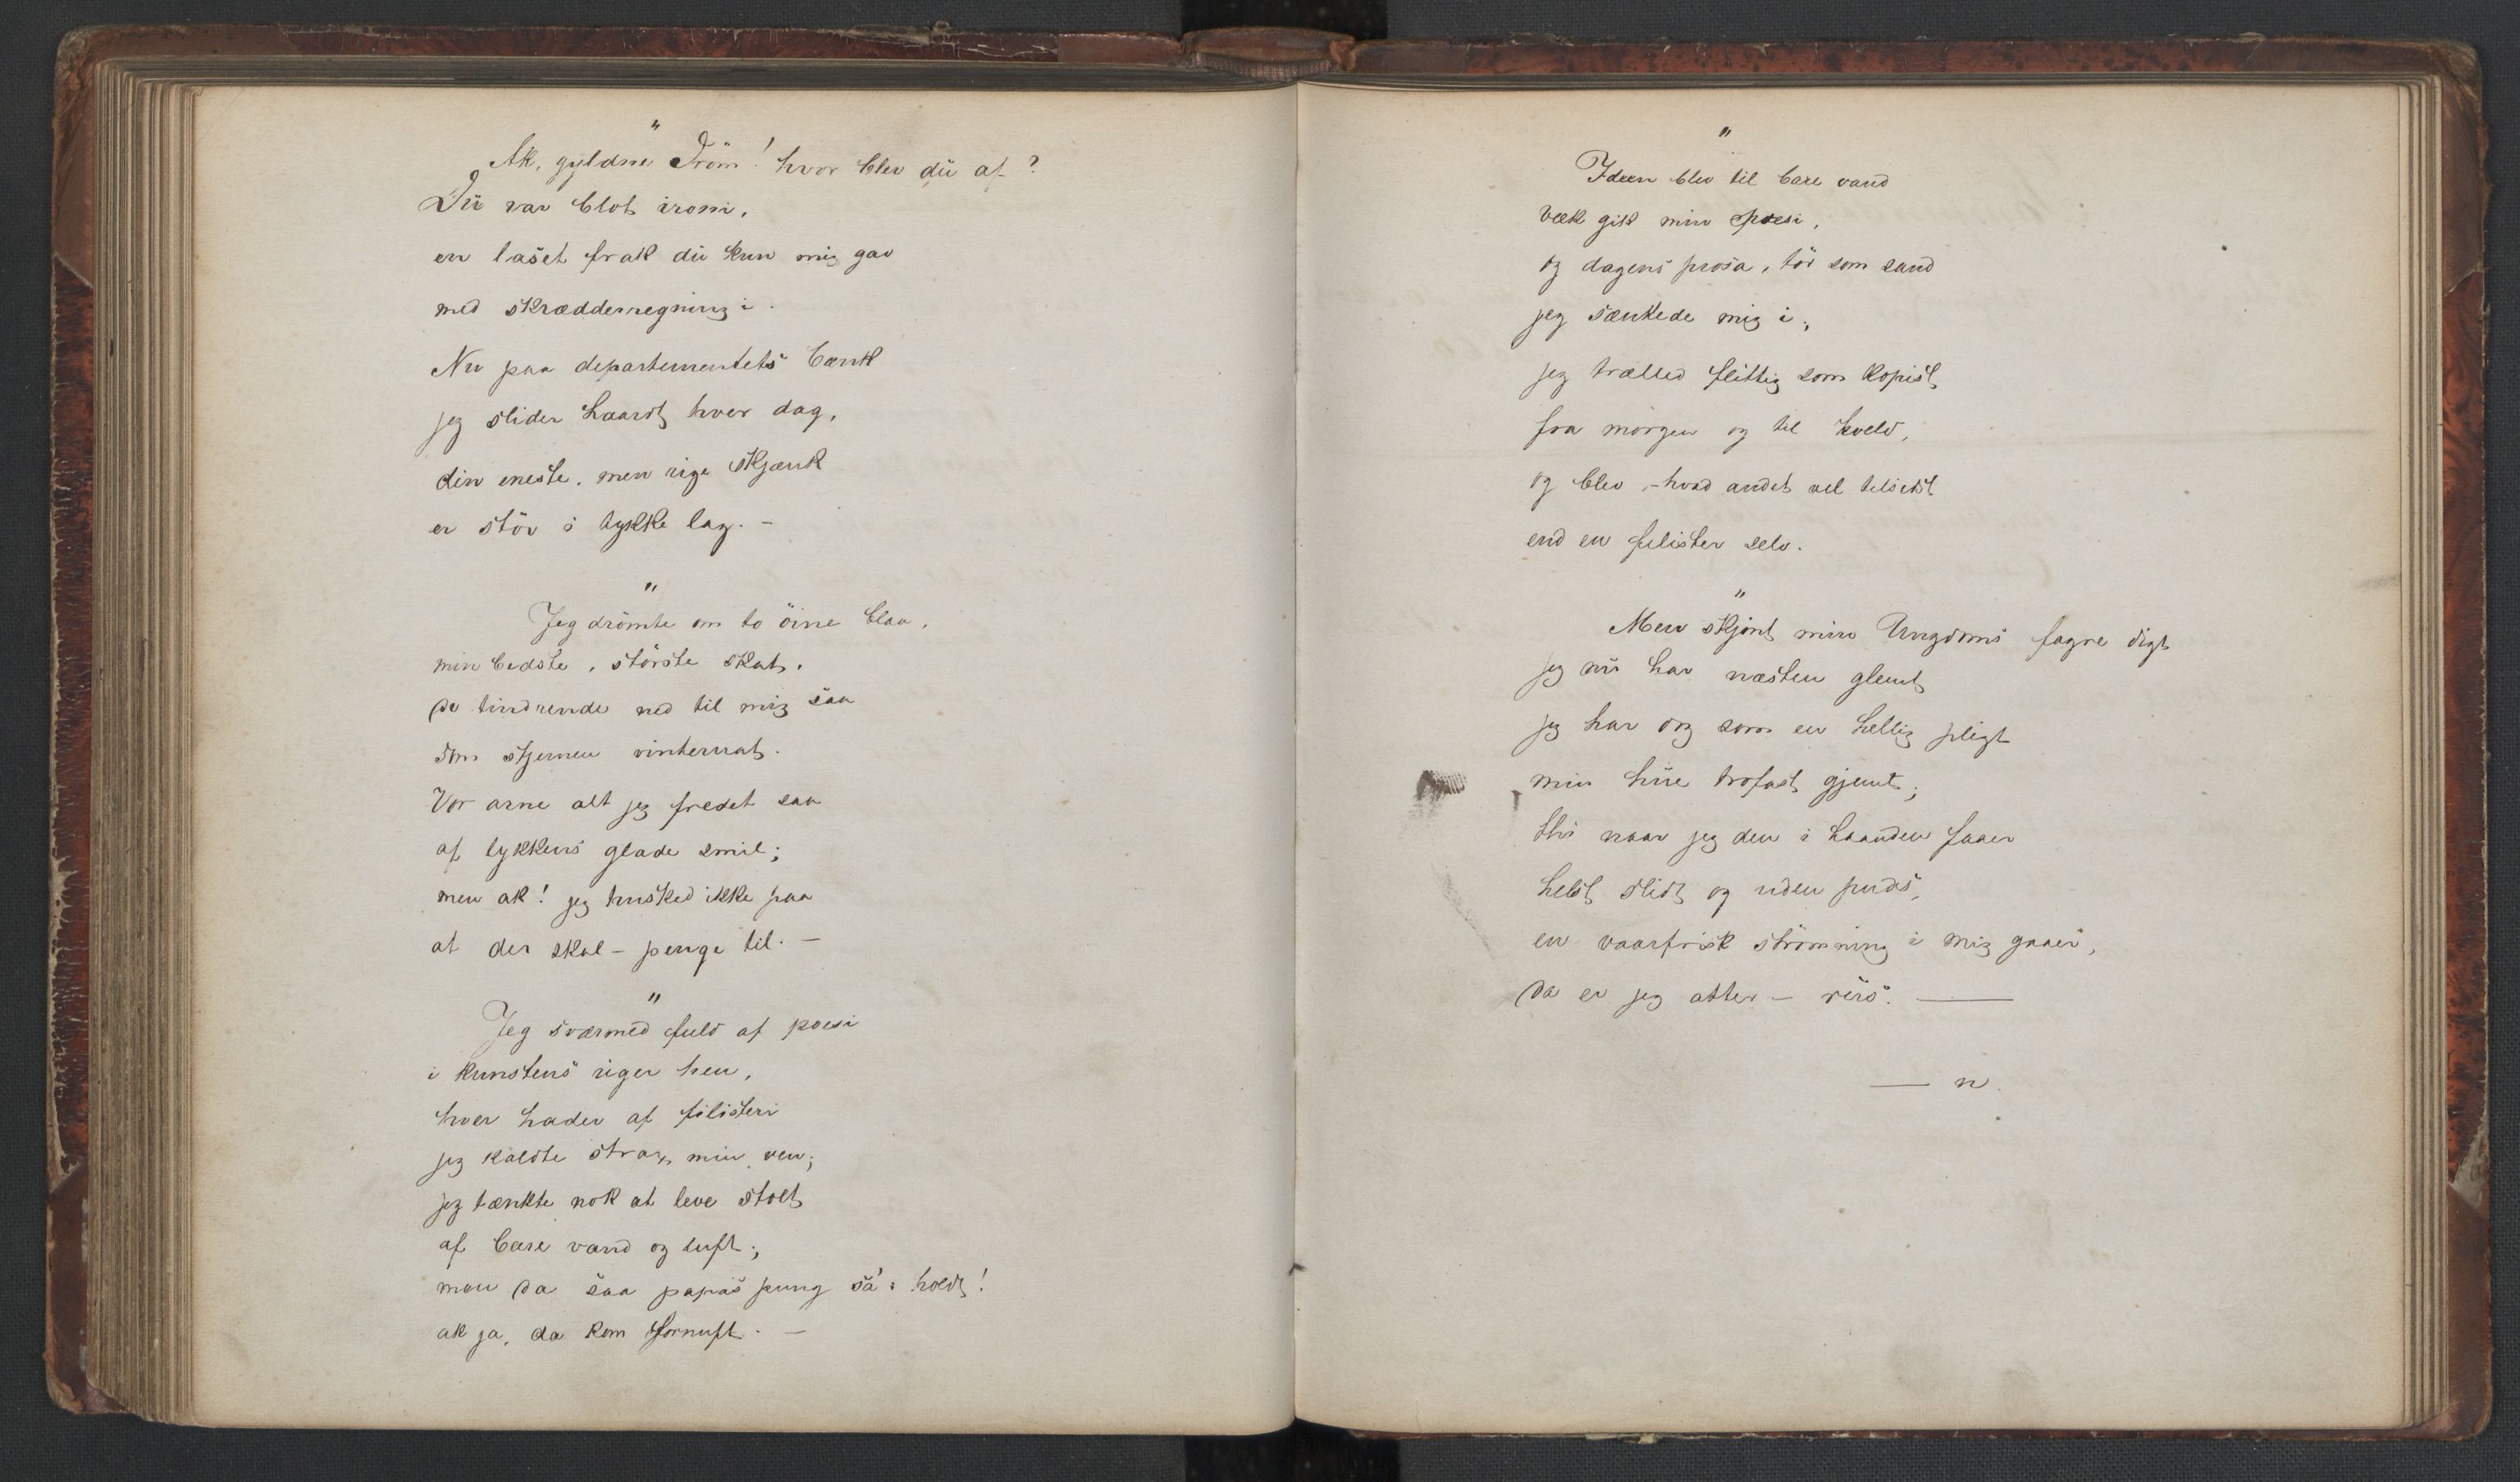 "
Ak, gyldne Dröm! hvor blev du af?
Du var blot ironi,
en laset frak du kun mig gav
med skrædderregning i.
Nu paa departementets bænk
jeg slider haardt hver dag,
din eneste, men rige skjænk
er stöv i tykke lag. -
"
Jeg drömte om to öine blaa,
min bedste, störste skat,
de tindrende ned til mig saa
som stjernen vinternat.
Vor arne alt jeg fredet saa
af lykkens glade smil;
men ak! jeg husked ikke paa
at der skal - penge til. -
"
Jeg sværmed fuld af poesi
i kunstens riger hen,
hver hader af filisteri
jeg kaldte strax min ven;
jeg tænkte nok at leve stolt
af bare vand og luft;
men da saa papas pung sa': holdt!
ak ja, da kom fornuft. -
"
Ideen blev til bare vand
væk gik min poesi,
og dagens prosa, tör som sand
jeg sænkede mig i,
jeg trælled flittig som kopist
fra morgen og til kveld,
og blev, - hvad andet vel tilsidst
end en filister selv.
"
Men skjönt min Ungdoms fagre digt
jeg nu har næsten glemt
jeg har dog som en hellig pligt
min hue trofast gjemt;
thi naar jeg den i haanden faaer
helst slidt og uden puds,
en vaarfrisk strömning i mig gaaer,
da er jeg atter - rus. —
— n.